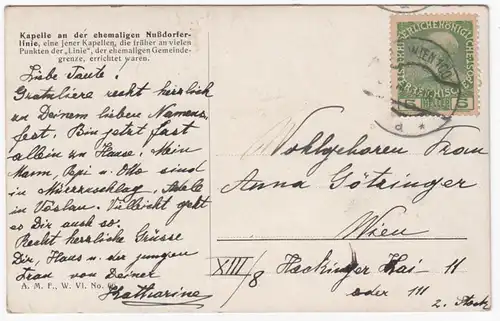 Kapelle an der ehemaligen Nußdorfer-
linie, eine jener Kapellen, die früher an vielen
Punkten der „Linie", der ehemaligen Gemeinde-
grenze, errichtet waren.
Liebe Tante!
Gratuliere recht herzlich
zu Deinem lieben Namens
fest. Bin jetzt fast
allein zu Hause. Mein
Mann, Papi u. Otto sind
in Mürzzuschlag, Adele
in Vöslau. Vielleicht geht
es Dir auch so.
Recht herzliche Grüsse
Dir, Hans u. der jungen
Frau von Deiner
Katharine
A. M. F., W. Vl. No.
WIEN
5 HELLER 5
Wohlgeboren Frau
Anna Götzinger
Wien
XIII/8 Hackinger Kai 11
oder III
2. Stock